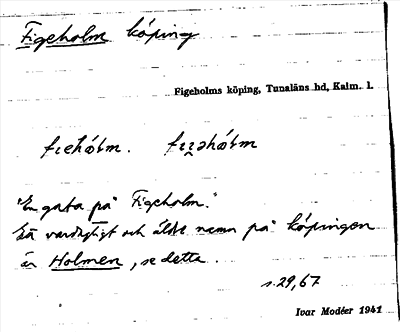 Figeholm köping
Figeholms köping, Tunaläns hd, Kalm. l.
"En gata på Figeholm."
vardagligt och äldre namn på köpingen
är Holmen, se detta.
s. 29, 67
Ivar Modéer 1941